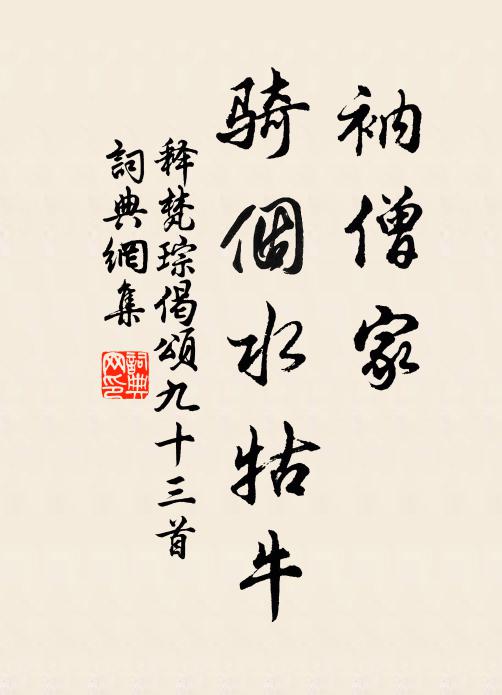 衲僧家
騎個水牯牛
释梵琮偈頌九十三首
詞典網集
詞典
网印